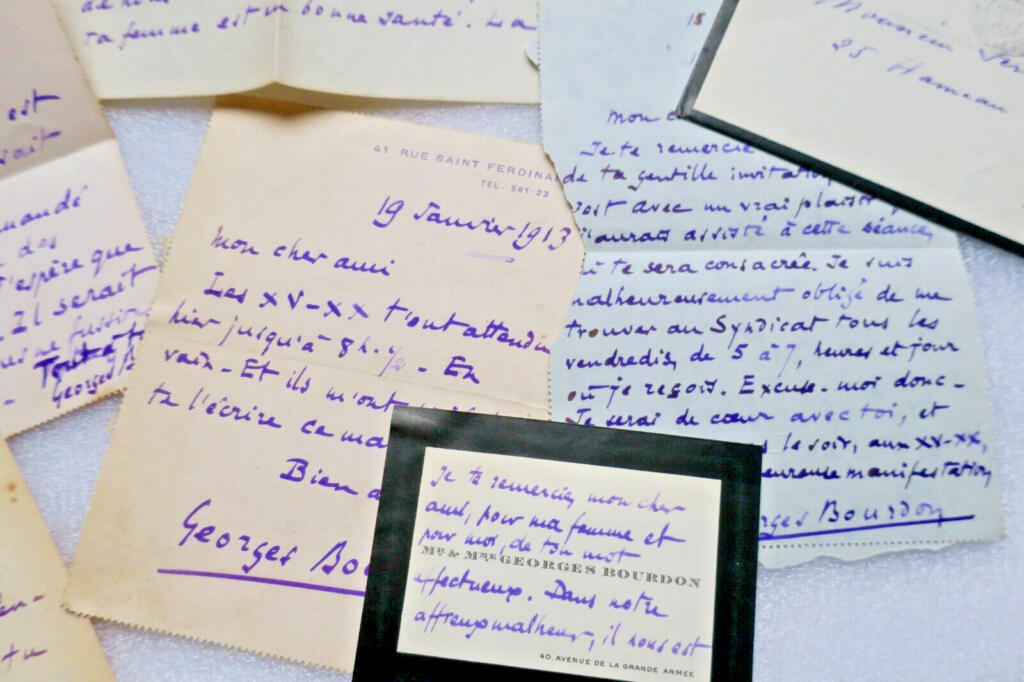 ta femme est en bonne santé. La
est
mandé
des
J'espère que
Il serait
Georges B
41, RUE SAINT FERDINA
TEL. 581-22
19 Janvier 1913
Mon cher ami
Les XV-XX t'ont attendu
hier jusqu'à 8h. 1/2 - En
vain - Et ils m'ont
te l'écrire ce ma
Bien a
Georges Bou
Mon
Je te remercie
de ta gentille invitation
avec un vrai plaisir
j'aurais assisté à cette séance,
qui te sera consacrée. Je suis
malheureusement obligé de me
trouver au Syndicat tous les
vendredis, de 5 à 7, heures et jour
où je reçois. Excuse-moi donc -
Je serai de cœur avec toi, et
le soir, aux XV-XX,
manifestation
rges Bourdon
Monsieur
25 Hameau
Je te remercie, mon cher
ami, pour ma femme et
pour moi, de ton mot
MR & MME GEORGES BOURDON
affectueux. Dans notre
affreux malheur, il nous est
40, AVENUE DE LA GRANDE ARMÉE